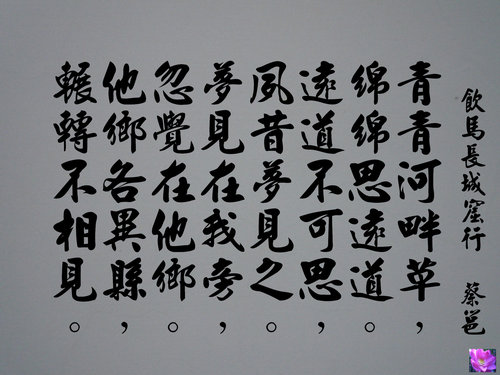 飲馬長城窟行 蔡邕
青青河畔草，
綿綿思遠道。
遠道不可思，
夙昔夢見之。
夢見在我旁，
忽覺在他鄉。
他鄉各異縣，
輾轉不相見。